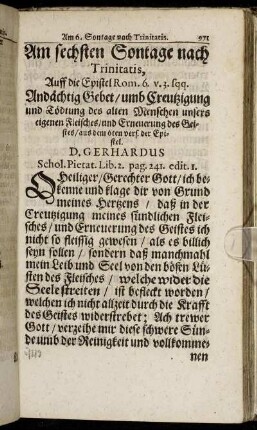 Am 6. Sontage nach Trinitatis. 971
Am sechsten Sontage nach
Trinitatis,
Auff die Epistel Rom. 6. v. 3. sqq.
Andächtig Gebet / umb Creutzigung
und Tödtung des alten Menschen unsers
eigenen Fleisches / und Erneuerung des Gei-
stes / aus dem 6ten vers. der Epi-
stel.
D. GERHARDUS
Schol. Pietat. Lib. 2. pag. 241. edit. 1.
O Heiliger / Gerechter Gott / ich be-
kenne und klage dir von Grund
meines Hertzens / daß in der
Creutzigung meines sündlichen Flei-
sches / und Erneuerung des Geistes ich
nicht so fleissig gewesen / als es billich
seyn sollen / sondern daß manchmahl
mein Leib und Seel von den bösen Lü-
sten des Fleisches / welche wider die
Seele streiten / ist befleckt worden /
welchen ich nicht allzeit durch die Krafft
des Geistes widerstrebet; Ach trewer
Gott / verzeihe mir diese schwere Sün-
de umb der Reinigkeit und vollkomme-
nen